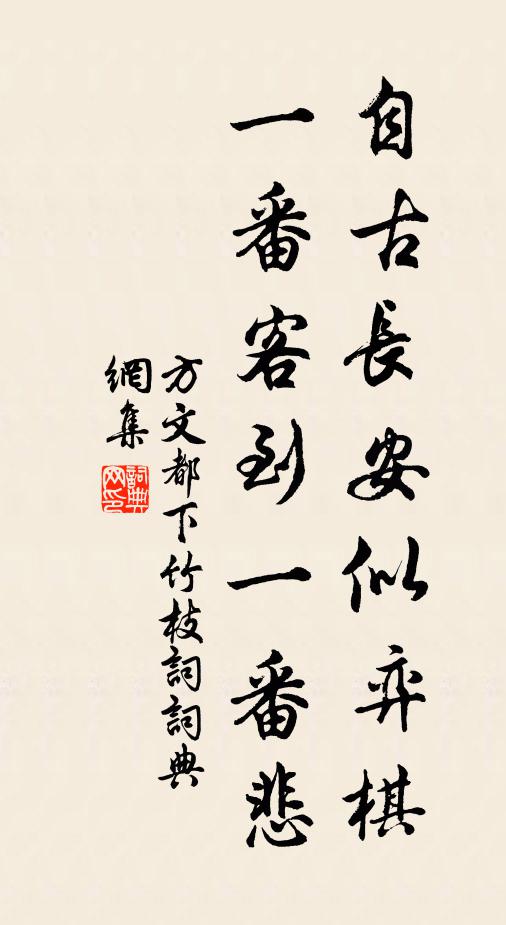 自古長安似弈棋
一番客到一番悲
方文都下竹枝詞詞典
網集
詞典
网印